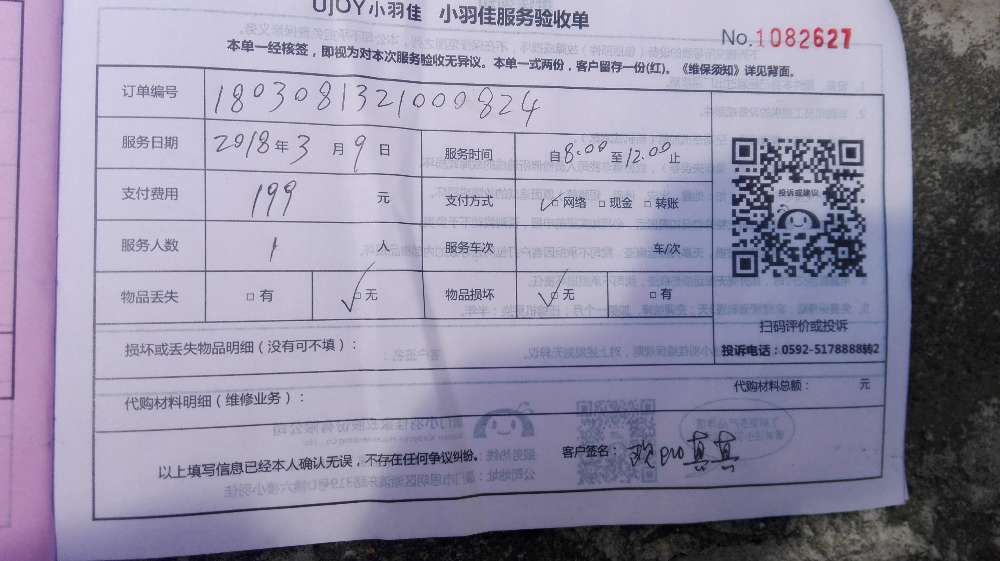 UJOY小羽佳 小羽佳服务验收单
No.1082627
本单一经核签，即视为对本次服务验收无异议。本单一式两份，客户留存一份(红)。《维保须知》详见背面。
订单编号 1803081321000824
服务日期 2018年3月9日 服务时间 自8:00至12:00止
支付费用 199 元 支付方式 ✓□网络 □现金 □转账
服务人数 1 人 服务车次 车/次
物品丢失 □有 ✓□无 物品损坏 ✓□无 □有
投诉或建议
扫码评价或投诉
投诉电话：0592-5178888转2
损坏或丢失物品明细（没有可不填）：
代购材料明细（维修业务）： 代购材料总额： 元
以上填写信息已经本人确认无误，不存在任何争议纠纷。 客户签名：